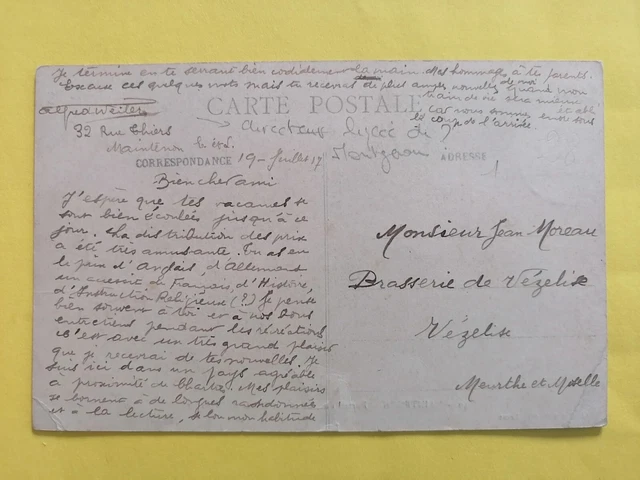 Je termine en te serrant bien cordialement la main. Mes hommages à tes parents.
Excuse ces quelques mots mais tu recevras de plus amples nouvelles de moi quand mon
train de vie sera meilleur
car nous sommes encore sous
le coup de l'arrivée.
Alfred Weiler
CARTE POSTALE
32 Rue Thiers
Maintenon E. et L.
→ directeur lycée de
Montgeron
CORRESPONDANCE
19 - Juillet 17
ADRESSE
1
Bien cher ami
J'espère que tes vacances se
sont bien écoulées jusqu'à ce
jour. La distribution des prix
a été très amusante. Tu as eu
le prix d'Anglais, d'Allemand
un accessit de Français, d'Histoire,
d'Instruction Religieuse (?) Je pense
bien souvent à toi et à nos bons
entretiens pendant les récréations
C'est avec un très grand plaisir
que je recevrai de tes nouvelles. Je
suis ici dans un pays agréable
à proximité de Chartres. Mes plaisirs
se bornent à de longues randonnées
et à la lecture, selon mon habitude
Monsieur Jean Moreau
Brasserie de Vézelise
Vézelise
Meurthe et Moselle